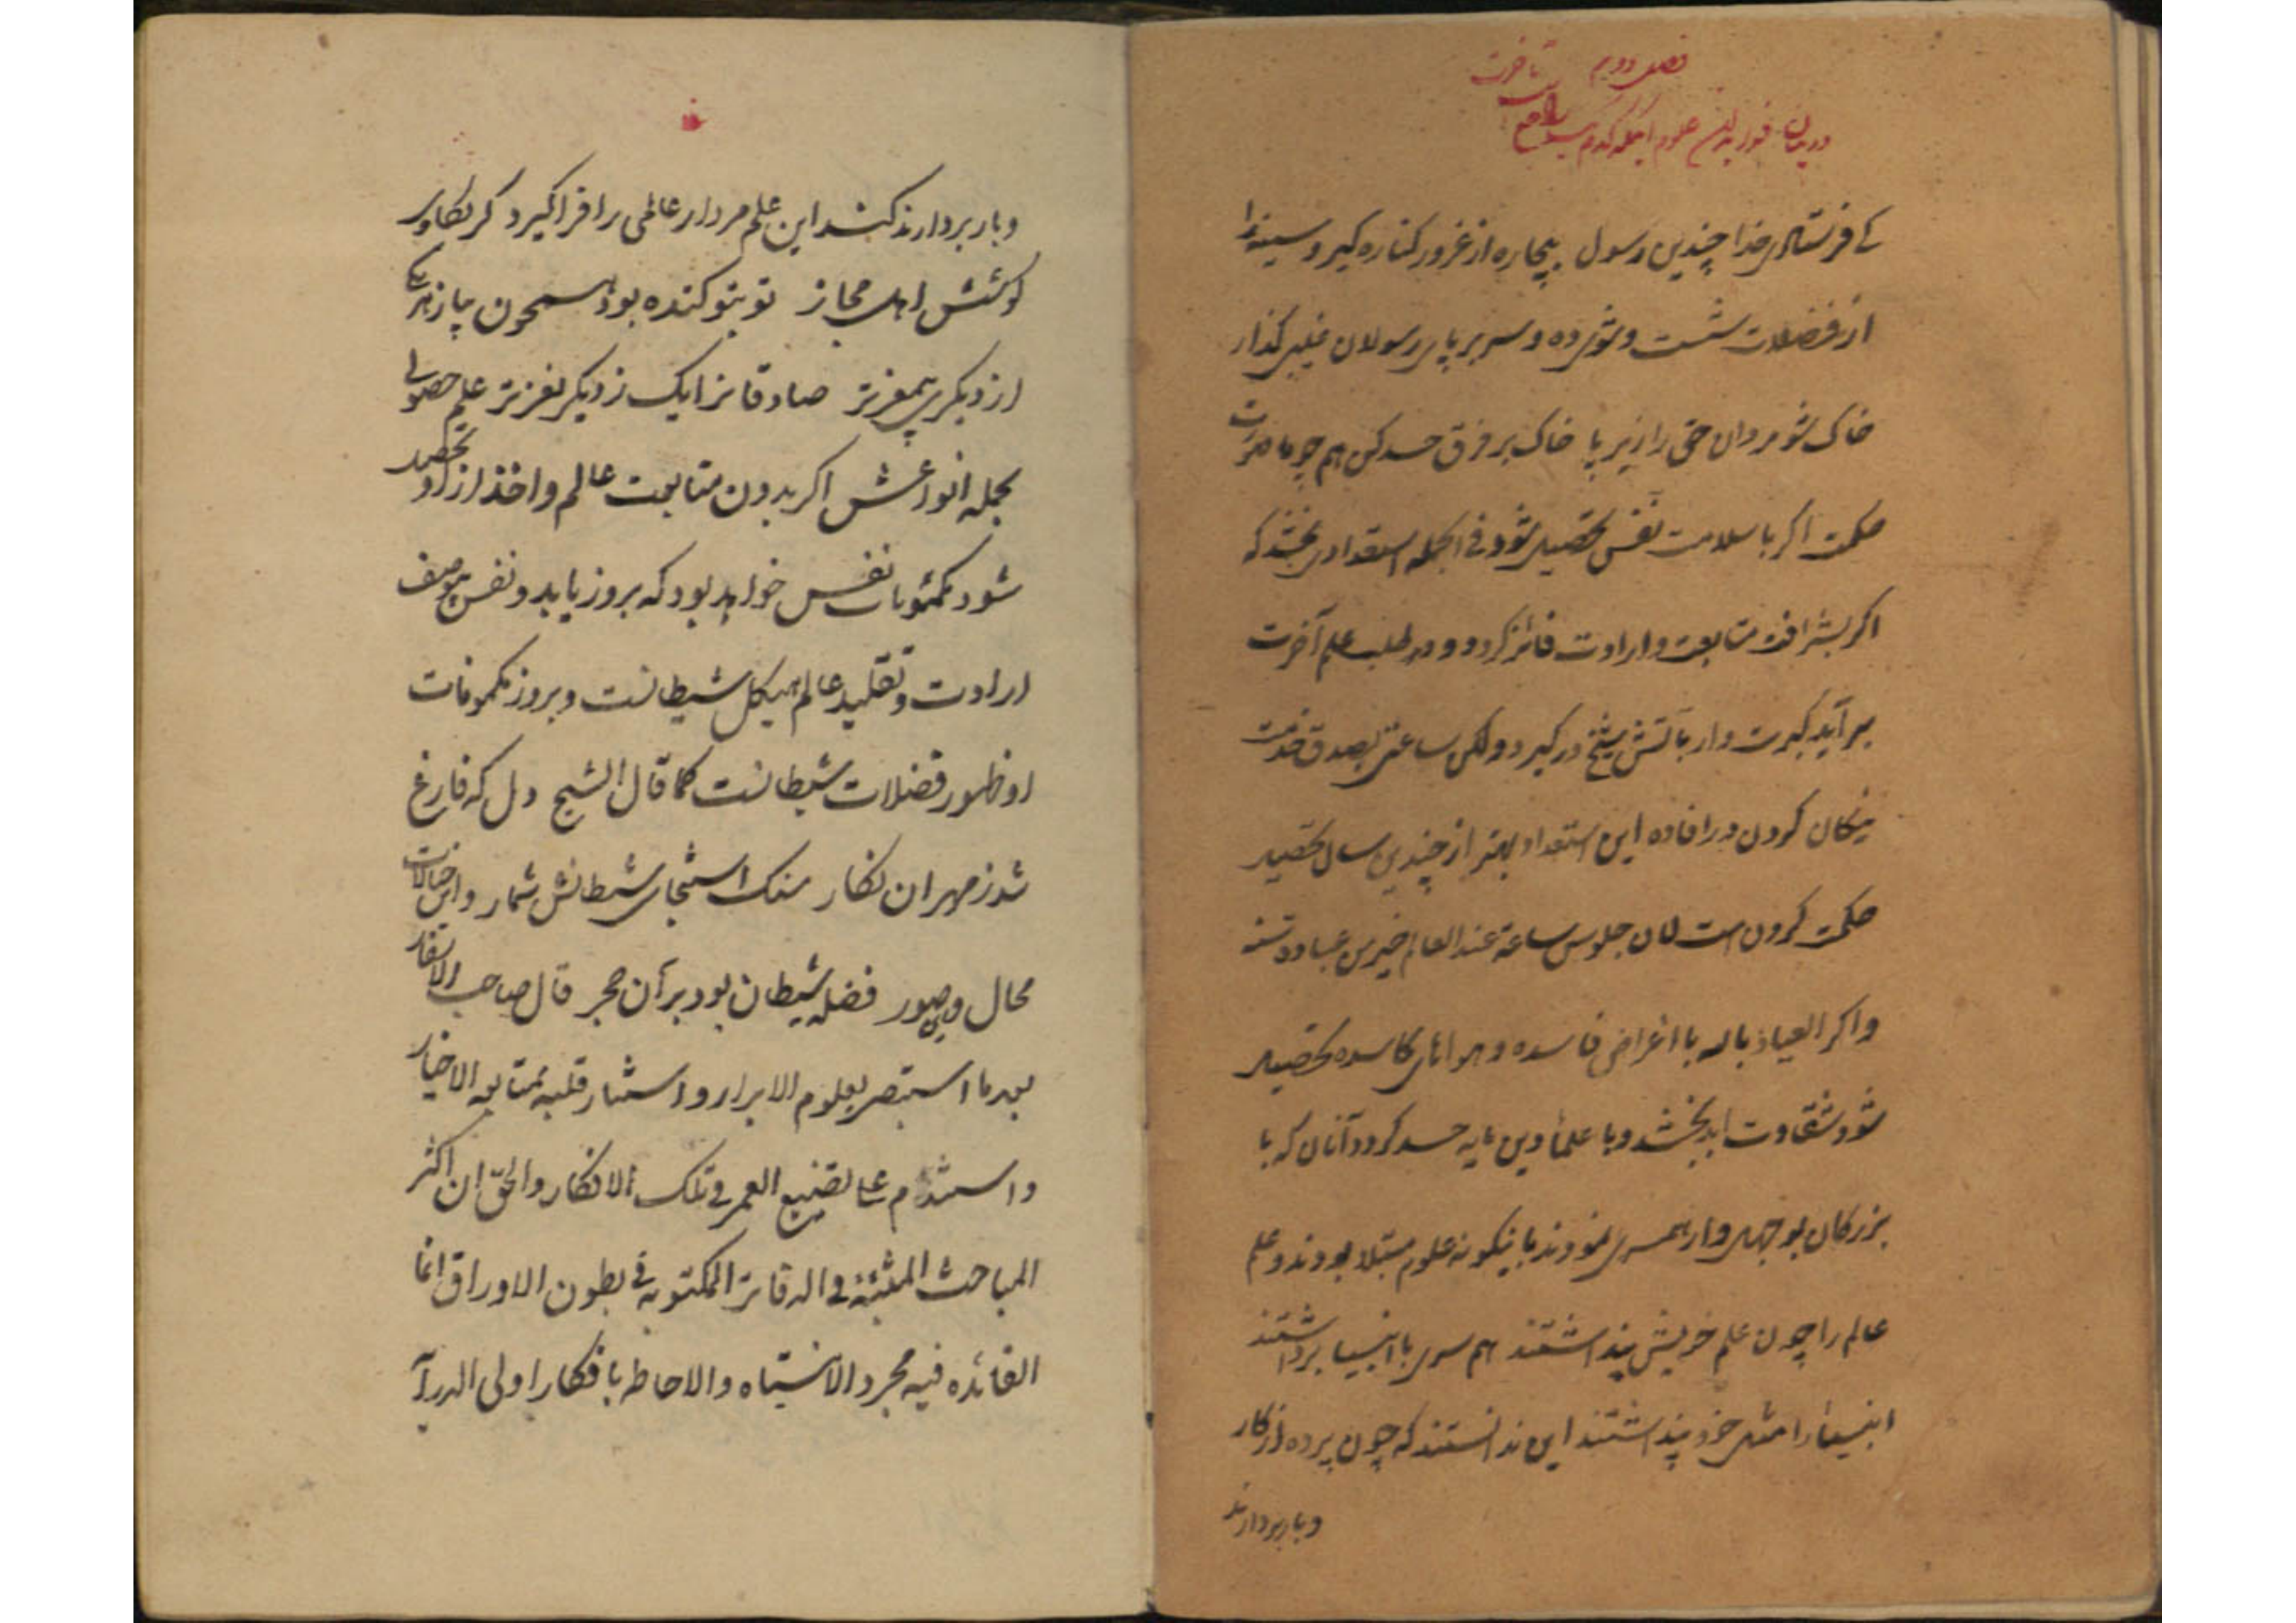 فصل دوم تا خرت
در بیان فوراید این علوم اینکه کدام
کے فرستادی خدا چندین رسول بیچاره از غرور کناره کیر و سینه را
از فضلات شست و شوی ده و سر بر پای رسولان غیبی گذار
خاک شو مردان حق را زیر پا خاک بر فرق حسد کن هم چو ما
حکمت اکر با سلامت نفس تحصیل شود فی الجمله استعدادی بخشد که
اکر بشرافت متابعت و ارادت فائز کردد و در طلب علم آخرت
بر آید کبریت وار بآتش شیخ در کیرد ولکن ساعتی بصدق خدمت
نیکان کردن در افاده این استعداد بهتر از چندین سال تحصیل
حکمت کردن است لان جلوس ساعة عند العالم خیر من عبادة سنه
و اکر العیاذ بالله با اغراض فاسده و هواهای کاسده تحصیل
شود شقاوت ابد بخشد و با علمآ دین مایه حسد کردد آنان که با
بزرکان بوجهل وار همسری نمودند باینکونه علوم مبتلا بودند و علم
عالم را چون علم خویش پنداشتند هم سری با انبیا برداشتند
انبیآ را مثل خود پنداشتند این ندانستند که چون پرده از کار
و بار بردارند
و بار بردارند کند این علم مردار عالمی را فرا گیرد کر بکاوی
کوشش اهل مجاز تو بتو کنده بود همچون پیاز هر یکی
از دیکری بیمغزتر صادقانرا یک ز دیکر نغزتر علم حصولی
بجمله انواعش اکر بدون متابعت عالم و اخذ از او تحصیل
شود مکنونات نفس خواهد بود که بروز یابد و نفس بیوصف
ارادت و تقلید عالم هیکل شیطانست و بروز مکمونات
او ظهور فضلات شیطانست کما قال الشیخ دل که فارغ
شد ز مهر ان نکار سنک استنجای شیطانش شمار و این خیالات
محال و این صور فضله شیطان بود بر آن حجر قال صاحب الاسفار
بعد ما استبصر بعلوم الابرار و استنار قلبه بمتابعه الاخیار
و استندم علی تضییع العمر فی تلک الافکار والحق ان اکثر
المباحث المثبتة فی الدفاتر المکتوبه فی بطون الاوراق انما
الفائده فیه مجرد الانتباه و الاحاطه بافکار اولی الدرایآ